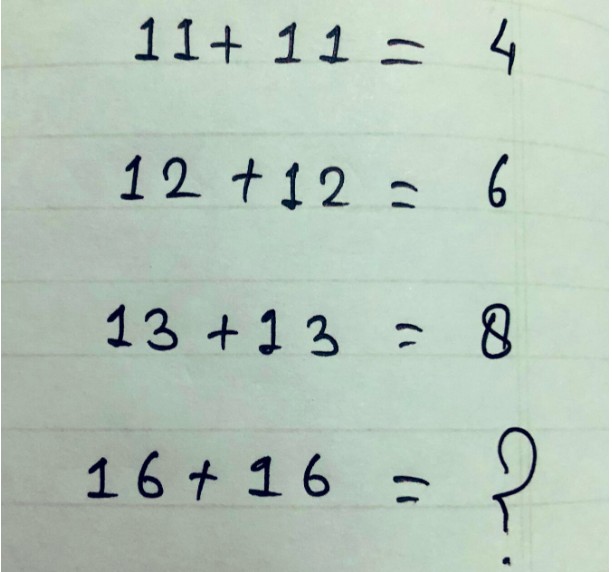 11+ 11 = 4
12 +12 = 6
13 +13 = 8
16+ 16 = ?